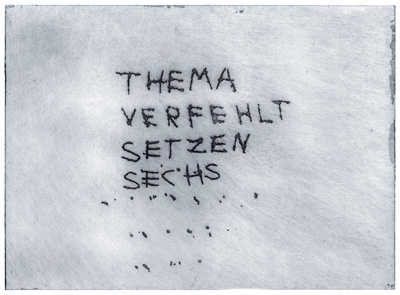 THEMA
VERFEHLT
SETZEN
SECHS